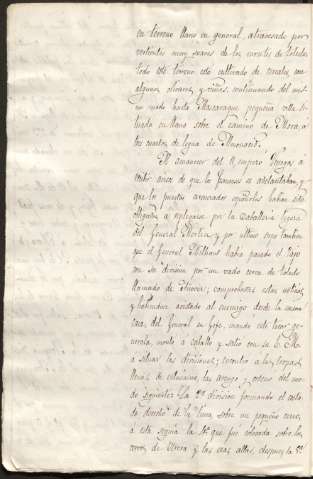 en terreno llano en general, atravesado por
vertientes muy suaves de los montes de Toledo
todo este terreno esta cultivado de cereales, con
algunos olivares, y viñas, continuando del mis-
mo modo hasta Mascaraque pequeña villa si-
tuada en llano sobre el camino de Mora a
tres cuartos de legua de Almonacid.
Al amanecer del 9, empezo Venegas a
recibir avisos de que los franceses se adelantaban, y
que los puestos avanzados españoles habian sido
obligados a replegarse por la caballeria ligera
del General Merlin, y por ultimo supo tambien
que el General Milhaud habia pasado el Tajo
con su division por un vado cerca de Toledo
llamado de ; comprobadas estas noticias,
y habiendose avistado al enemigo desde la misma
casa del General en Gefe, mandó este tocar ge-
nerala, montó a caballo y salio con su E. M.
a situar las divisiones; encontro a las tropas
llenas de entusiasmo, las arengó y ordenó del mo-
do siguiente: La 2ª division formando el costa-
do derecho de la linea, sobre un pequeño cerro,
a esta seguia la 4ª que fué colocada sobre los
cerros de Utrera y las mas altas, despues la 5ª